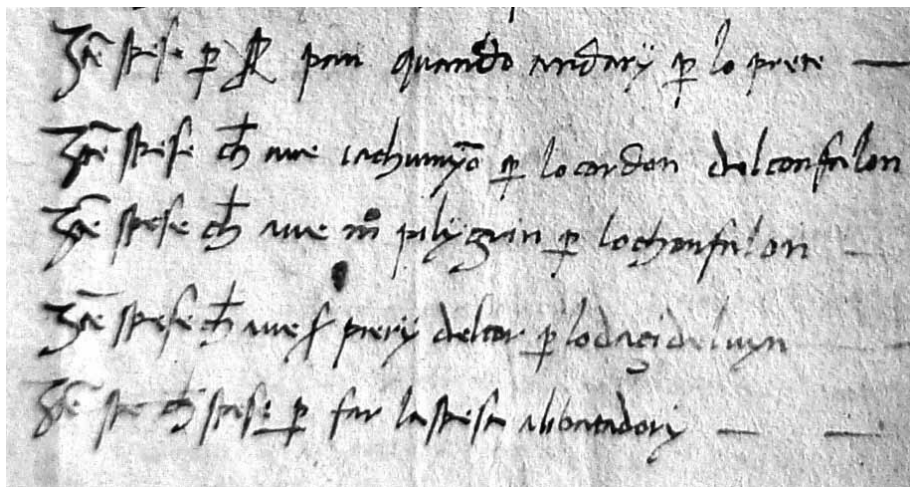 Item spese p pan quando andary p lo prete
Item spese ch ave iachumyo p lo cordon del confalon
Item spese ch ave mo pilygrin p lo chonfalon
Item spese ch ave s pieryj deltor p lo daçi del vyn
Item spe ch spese p far la spesa ali batadory